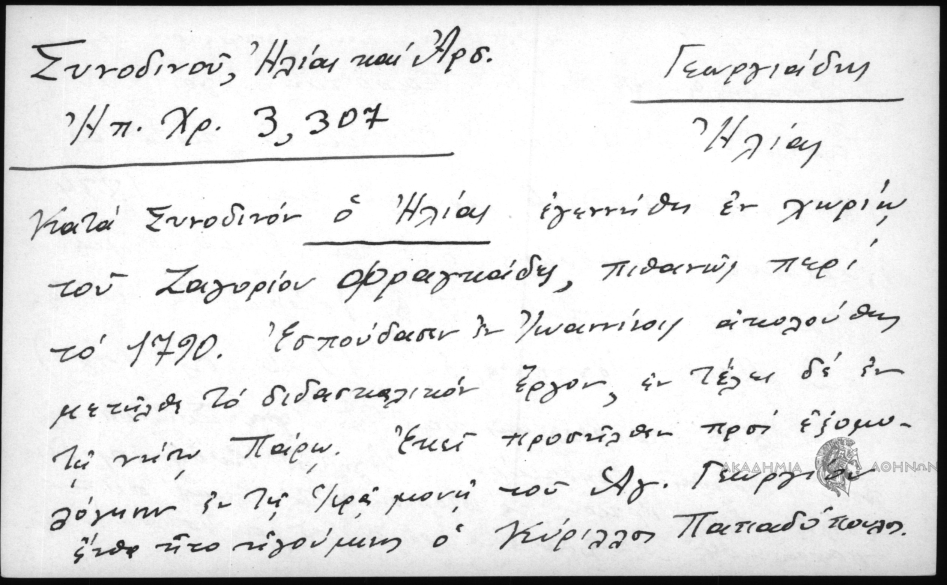 Συνοδινοῦ, Ἠλίας καί Ἀρσ.
Γεωργιάδης
Ἠπ. Χρ. 3, 307
Ἠλίας
Κατά Συνοδινόν ὁ Ἠλίας ἐγεννήθη ἐν χωρίῳ
τοῦ Ζαγορίου Φραγκάδες, πιθανῶς περί
τό 1790. Ἐσπούδασεν ἐν Ἰωαννίνοις ἀκολούθως
μετῆλθε τό διδασκαλικόν ἔργον, ἐν τέλει δέ ἐν
τῇ νήσῳ Πάρῳ. Ἐκεῖ προσῆλθεν πρός ἐξομο-
λόγησιν ἐν τῇ Ἱερᾷ μονῇ τοῦ Ἁγ. Γεωργίου
ἔνθα ἦτο ἡγούμενος ὁ Κύριλλος Παπαδόπουλος.
ΑΚΑΔΗΜΙΑ ΑΘΗΝΩΝ